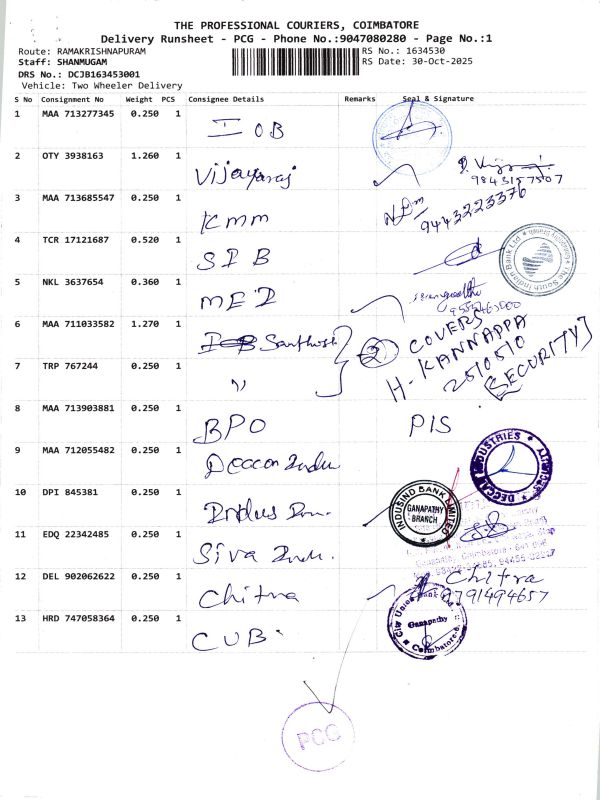 THE PROFESSIONAL COURIERS, COIMBATORE
Delivery Runsheet - PCG - Phone No.:9047080280 - Page No.:1
Route: RAMAKRISHNAPURAM
RS No.: 1634530
Staff: SHANMUGAM
RS Date: 30-Oct-2025
DRS No.: DCJB163453001
Vehicle: Two Wheeler Delivery
S No Consignment No Weight PCS Consignee Details Remarks Seal & Signature
1 MAA 713277345 0.250 1 IOB
2 OTY 3938163 1.260 1 Vijayaraj
9843157507
3 MAA 713685547 0.250 1 KMM 9443223376
4 TCR 17121687 0.520 1 SIB
The South Indian Bank Ltd
5 NKL 3637654 0.360 1 MEI
6 MAA 711033582 1.270 1 Santhosh
2 COVERS
H. KANNAPPA
2510510
[SECURITY]
7 TRP 767244 0.250 1 "
8 MAA 713903881 0.250 1 BPO PIS
9 MAA 712055482 0.250 1 Deccan Indu
DECCAN INDUSTRIES
10 DPI 845381 0.250 1
INDUSIND BANK LIMITED
GANAPATHY
BRANCH
11 EDQ 22342485 0.250 1 Siva Indu.
12 DEL 902062622 0.250 1 Chitra
Chitra
9791494657
13 HRD 747058364 0.250 1 CUB
City Union Bank Ltd
Ganapathy
Coimbatore-6.
PCG